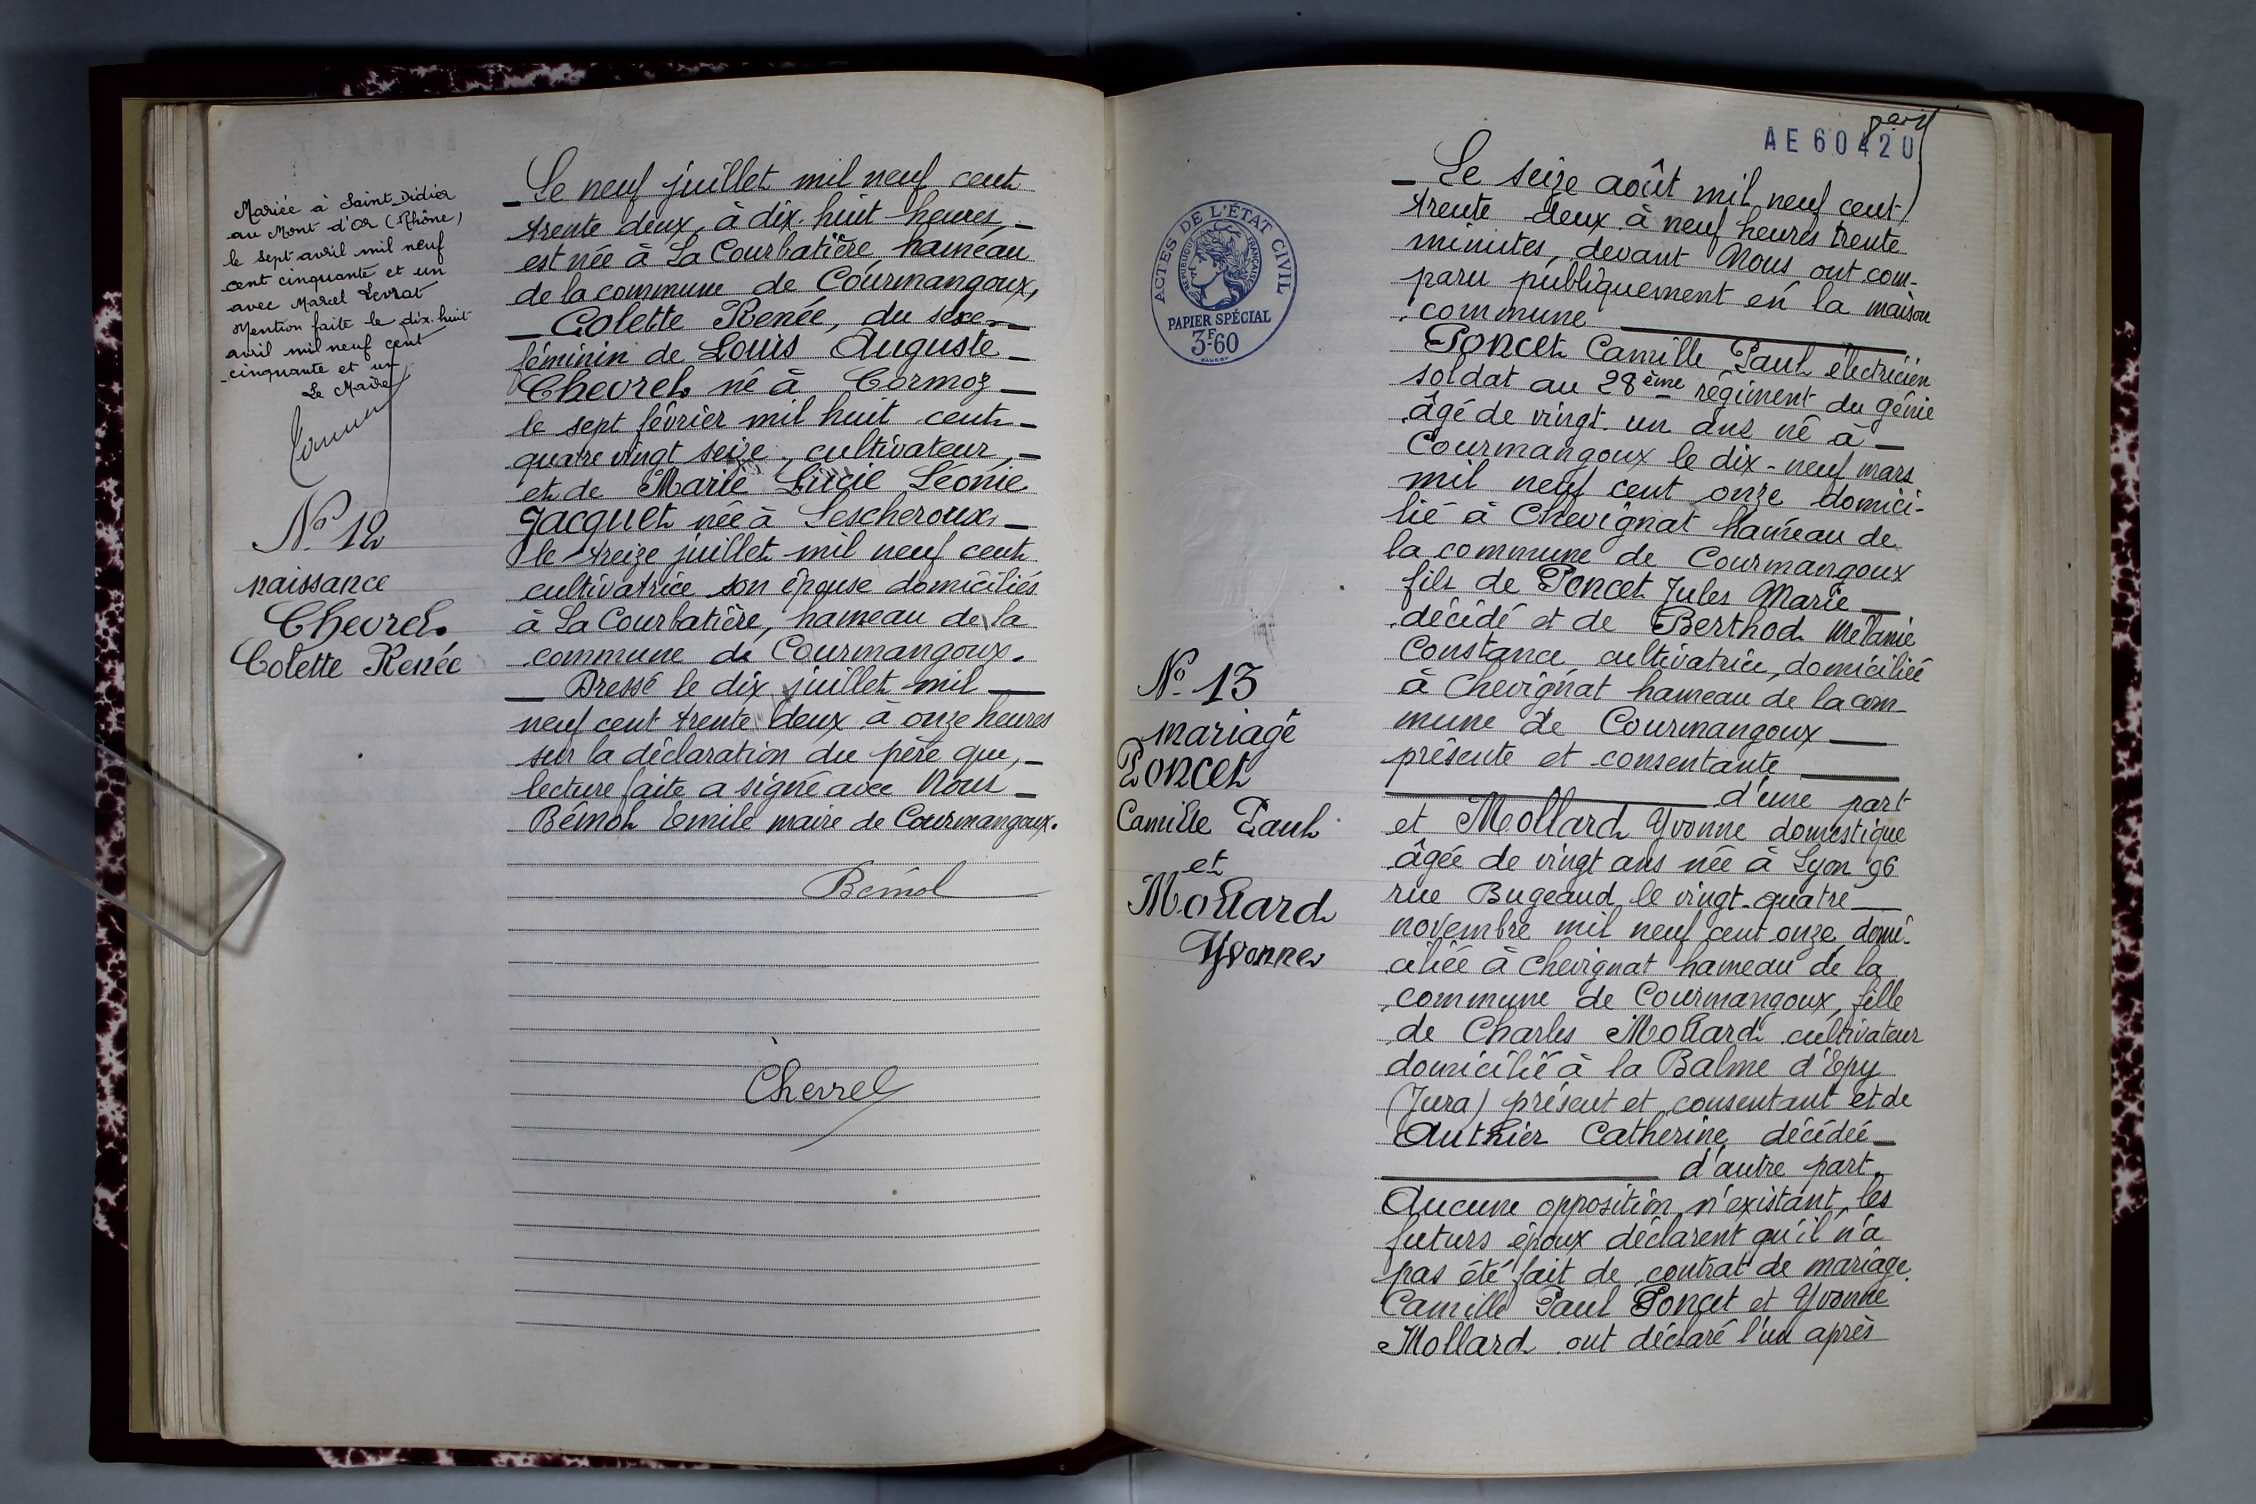 Mariée à Saint-Didier
au Mont d'Or (Rhône)
le sept avril mil neuf
cent cinquante et un
avec Marcel Levrat
Mention faite le dix-huit
avril mil neuf cent
cinquante et un
Le Maire
N° 12
naissance
Chevrel
Colette Renée
Le neuf juillet mil neuf cent
trente deux, à dix-huit heures,
est née à La Courbatière, hameau
de la commune de Courmangoux,
Colette Renée, du sexe
féminin de Louis Auguste
Chevrel né à Cormoz
le sept février mil huit cent
quatre vingt seize, cultivateur,
et de Marie Lucie Léonie
Jacquet née à Lescheroux,
le treize juillet mil neuf cent
cultivatrice son épouse domiciliés
à La Courbatière, hameau de la
commune de Courmangoux.
Dressé le dix juillet mil
neuf cent trente deux à onze heures
sur la déclaration du père que,
lecture faite a signé avec Nous
Bémol Émile maire de Courmangoux.
Bémol
Chevrel
AE 60420
ACTES DE L'ÉTAT CIVIL
RÉPUBLIQUE FRANÇAISE
PAPIER SPÉCIAL
3F60
N° 13
mariage
Poncet
Camille Paul
et
Mollard
Yvonne
Le seize août mil neuf cent
trente deux à neuf heures trente
minutes, devant Nous ont com-
paru publiquement en la maison
commune
Poncet Camille Paul électricien
soldat au 28ème régiment du génie
âgé de vingt-un ans né à
Courmangoux le dix-neuf mars
mil neuf cent onze domici-
lié à Chevignat hameau de
la commune de Courmangoux
fils de Poncet Jules Marie
décédé et de Berthod Mélanie
Constance cultivatrice, domiciliée
à Chevignat hameau de la com-
mune de Courmangoux
présente et consentante
d'une part
et Mollard Yvonne domestique
âgée de vingt ans née à Lyon 96
rue Bugeaud le vingt-quatre
novembre mil neuf cent onze domi-
ciliée à Chevignat hameau de la
commune de Courmangoux, fille
de Charles Mollard cultivateur
domicilié à la Balme d'Epy
(Jura) présent et consentant et de
Authier Catherine décédée
d'autre part.
Aucune opposition n'existant, les
futurs époux déclarent qu'il n'a
pas été fait de contrat de mariage.
Camille Paul Poncet et Yvonne
Mollard ont déclaré l'un après